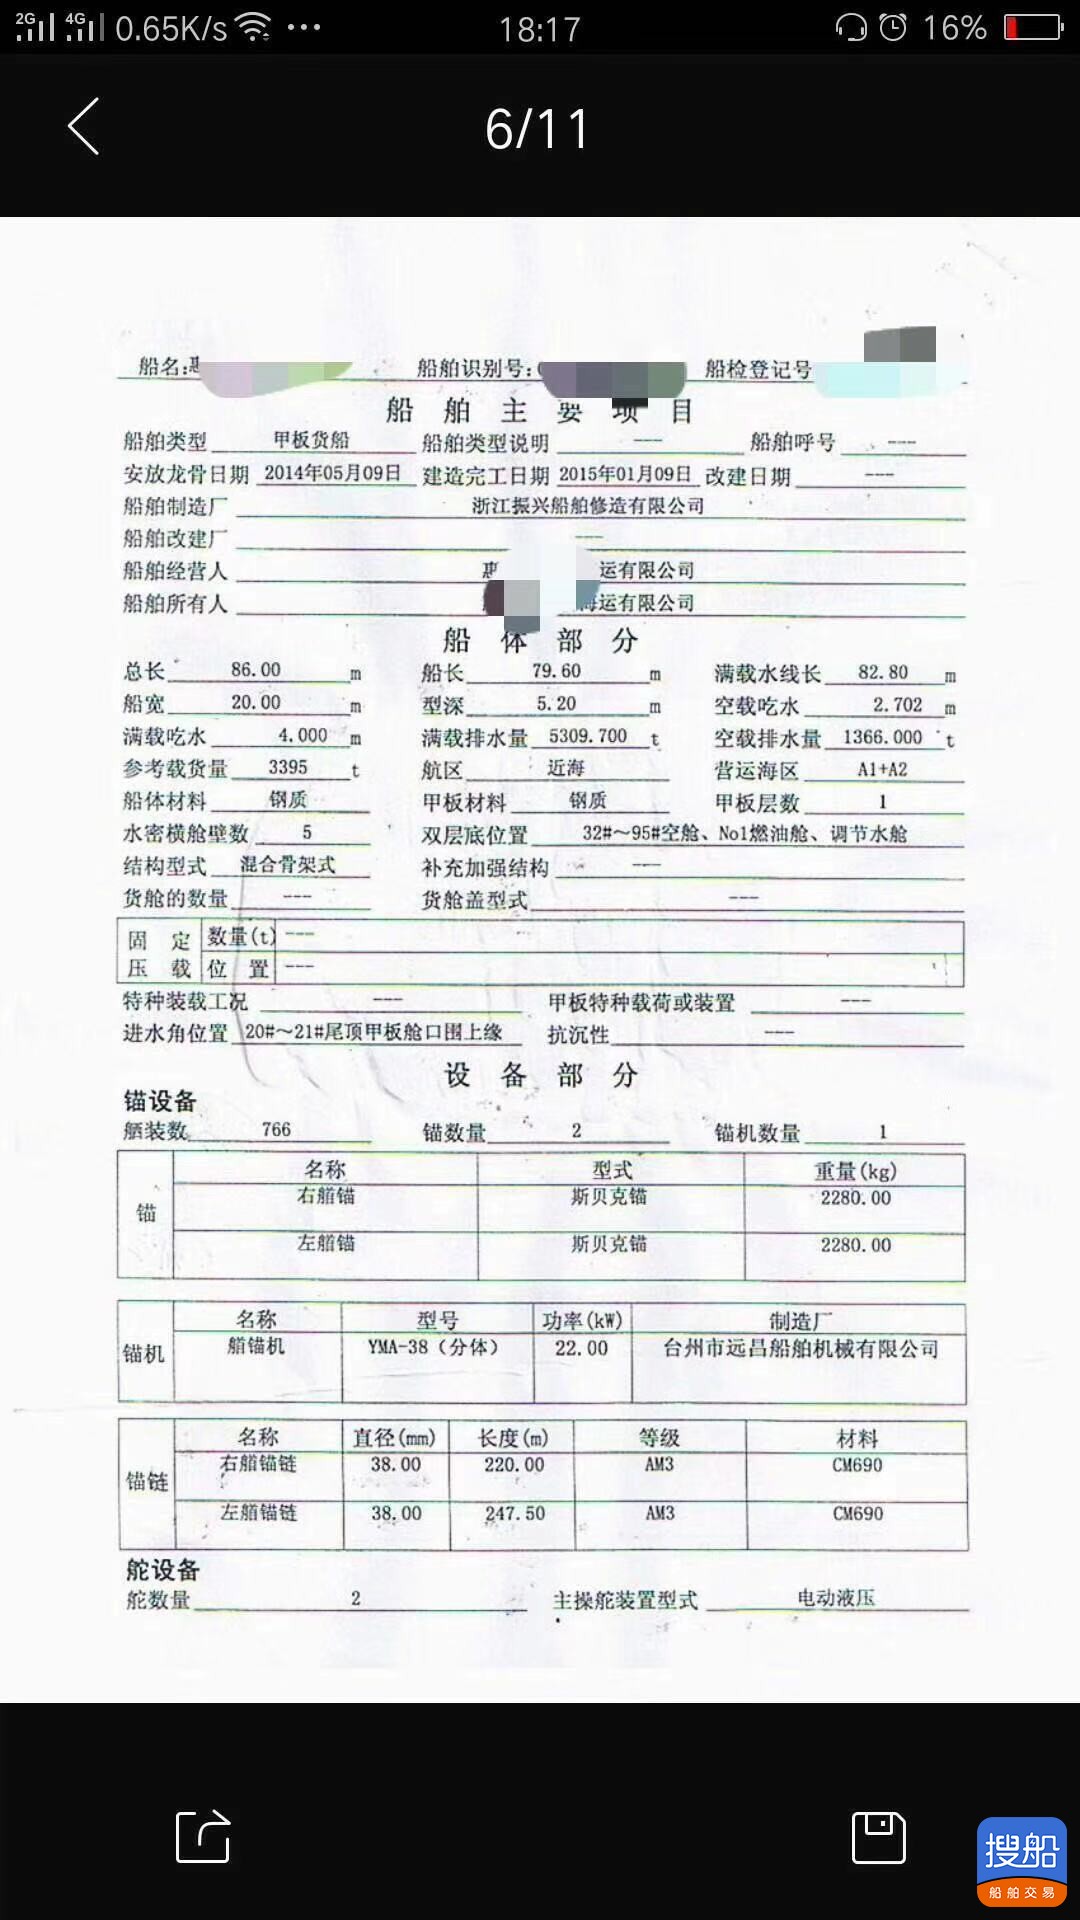 2G 4G 0.65K/s 18:17 16%
6/11
船名:惠 船舶识别号: 船检登记号
船舶主要项目
船舶类型 甲板货船 船舶类型说明 --- 船舶呼号 ---
安放龙骨日期 2014年05月09日 建造完工日期 2015年01月09日 改建日期 ---
船舶制造厂 浙江振兴船舶修造有限公司
船舶改建厂 ---
船舶经营人 惠 运有限公司
船舶所有人 海运有限公司
船体部分
总长 86.00 m 船长 79.60 m 满载水线长 82.80 m
船宽 20.00 m 型深 5.20 m 空载吃水 2.702 m
满载吃水 4.000 m 满载排水量 5309.700 t 空载排水量 1366.000 t
参考载货量 3395 t 航区 近海 营运海区 A1+A2
船体材料 钢质 甲板材料 钢质 甲板层数 1
水密横舱壁数 5 双层底位置 32#~95#空舱、No1燃油舱、调节水舱
结构型式 混合骨架式 补充加强结构 ---
货舱的数量 --- 货舱盖型式 ---
固定 数量(t) ---
压载 位置 ---
特种装载工况 --- 甲板特种载荷或装置 ---
进水角位置 20#~21#尾顶甲板舱口围上缘 抗沉性 ---
设备部分
锚设备
舾装数 766 锚数量 2 锚机数量 1
锚 名称 型式 重量(kg)
右艏锚 斯贝克锚 2280.00
左艏锚 斯贝克锚 2280.00
锚机 名称 型号 功率(kW) 制造厂
艏锚机 YMA-38(分体) 22.00 台州市远昌船舶机械有限公司
锚链 名称 直径(mm) 长度(m) 等级 材料
右艏锚链 38.00 220.00 AM3 CM690
左艏锚链 38.00 247.50 AM3 CM690
舵设备
舵数量 2 主操舵装置型式 电动液压
搜船
船舶交易